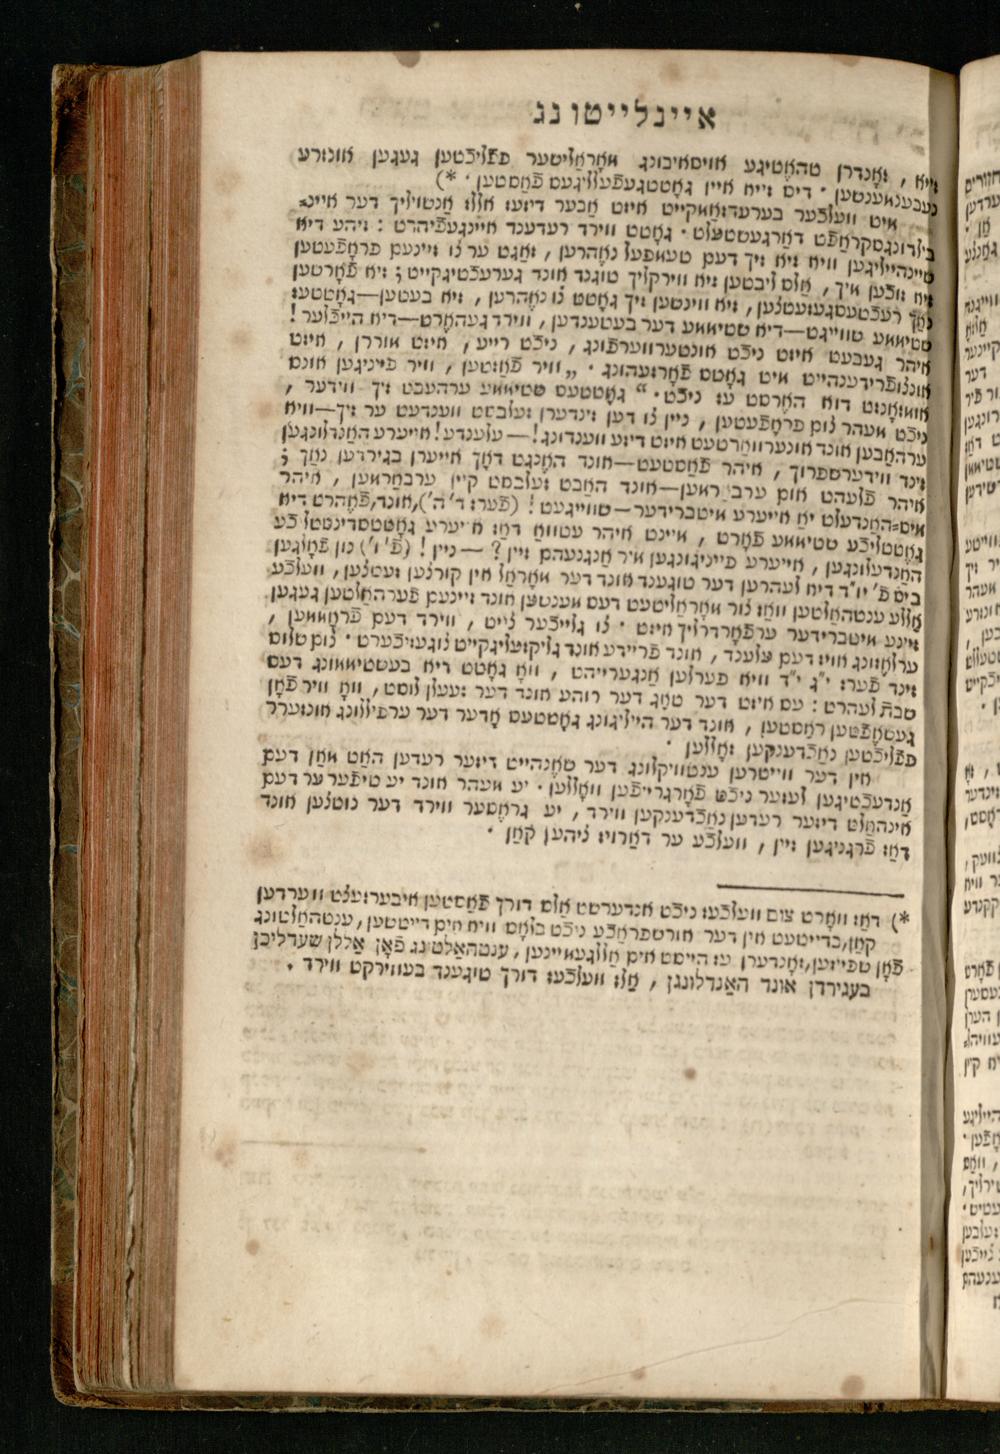 איינלייטונג
זיא , זאָנדרן טהאָטיגע אויסאיבונג מאָראַליטער פפליכטען געגען אונזרע
נעבענמענטען · דיס זייא איין גאָטטגעפעלליגעס פאַסטען · *)
מיט וועלכער בערעדזאַמקייט איזט אַבער דיזעז אללז אַנטויליך דער איינ=
בילדונגסקראַפט דאַרגעשטעלט · גאָטט ווירד רעדענד איינגעפיהרט : זיהע דיא
שיינהייליגען וויא זיא זיך דעם טעמפעל נאָהרען , זאַגט ער צו זיינעם פראָפעטען
זיא זוכען מיך , אַלס ליבטען זיא ווירקליך טוגנד אונד גערעכטיגקייט ; זיא פאָרטען
נאָך רעכטעסגעזעטצען , זיא ווינטען זיך גאָטט צו נאָהרען , זיא בעטען—גאָטטעז
שטיממע שווייגט—דיא שטיממע דער בעטענדען , ווירד געהאָרט—דיא הייכלער !
איהר געבעט איזט ניכט אונטערווערפונג , ניכט רייע , איזט מוררן , איזט
אונצופרידענהייט מיט גאָטס פאָרזעהונג · „ וויר פאַזטען , וויר פייניגען אונס
אומזאָנזט דוא האָרסט עז ניכט · “ גאָטטעס שטיממע ערהעבט זיך ווידער ,
ניכט מעהר צום פראָפעטען , ניין צו דען זינדערן זעלבסט ווענדעט ער זיך—וויא
ערהאַבען אונד אונערוואַרטעט איזט דיזע ווענדונג ! — עלענדע ! אייערע האַנדלונגען
זינד ווידערספרוך , איהר פאַסטעט—אונד האָנגט דאָך אייערן בגירדען נאַך ;
איהר פלעהט אום ערבאַראמען—אונד האַבט זעלבסט קיין ערבאַראמען , איהר
מיס=האַנדעלט יאַ אייערע מיטברידער—שווייגעט ! (פער׳ ד׳ ה׳), אונד, פאָהרט דיא
גאָטטליכע שטיממע פאָרט , מיינט איהר עטוואַ דאַז אייערע גאָטטסדינסטליכע
האַנדעלונגען , אייערע פייניגונגען מיר אַנגענעהם זיין ? — ניין ! (פ׳ ו׳) נון פאָלגען
ביס פ׳ יו״ד דיא לעהרען דער טוגענד אונד דער מאָראַל אין קורצען זעטצען , וועלכע
אַללע ענטהאַלטען וואַז צור מאָראַליטעט דעס מענטשן אונד זיינעם פערהאַלטען געגען
זיינע מיטברידער ערפאָרדרליך איזט · צו גלייכער צייט , ווירד דעם פראָממען ,
ערלאָזונג אויז דעם עלענד , אונד פריידע אונד גליקזעליגקייט צוגעזיכערט · צום שלוס
זינד פער׳ י״ג י״ד וויא פערלען אַנגערייהט , וואו גאָטט דיא בעשטיממונג דעס
שבת לעהרט : עס איזט דער טאַג דער רוהע אונד דער זעעלן לוסט , וואָ וויר פאָן
געשאָפטען ראַסטען , אונד דער הייליגונג גאָטטעס אָדער דער ערפיללונג אונזערר
פפליכטען נאַכדענקען זאָללען ·
אין דער ווייטרען ענטוויקלונג דער שאָנהייט דיזער רעדען האַט מאַן דעם
אַנדעכטיגען לעזער ניכט פאָרגרייפען וואָללען · יע מעהר אונד יע טיפער ער דעם
אינהאַלט דיזער רעדען נאַכדענקען ווירד , יע גראָסער ווירד דער נוטצען אונד
דאַז פרגניגען זיין , וועלכע ער דאַרויז ציהען קאַן ·
*) דאַז וואָרט צום וועלכעז ניכט אנדערסט אַלס דורך פאַסטען איבערזעצט ווערדען
קאַן , בדייטעט אין דער אורספראַכע ניכט בלאָס וויא הים דייטטען , ענטהאַלטונג
פאָן שפייזען , זאָנדערן עז הייסט הים אַללגעמיינען , ענטהאַלטנג פאָן אַללן שעדליכן
בעגירדן אונד האַנדלונגן , אַלז וועלכעז דורך טיגענד בעווירקט ווירד .